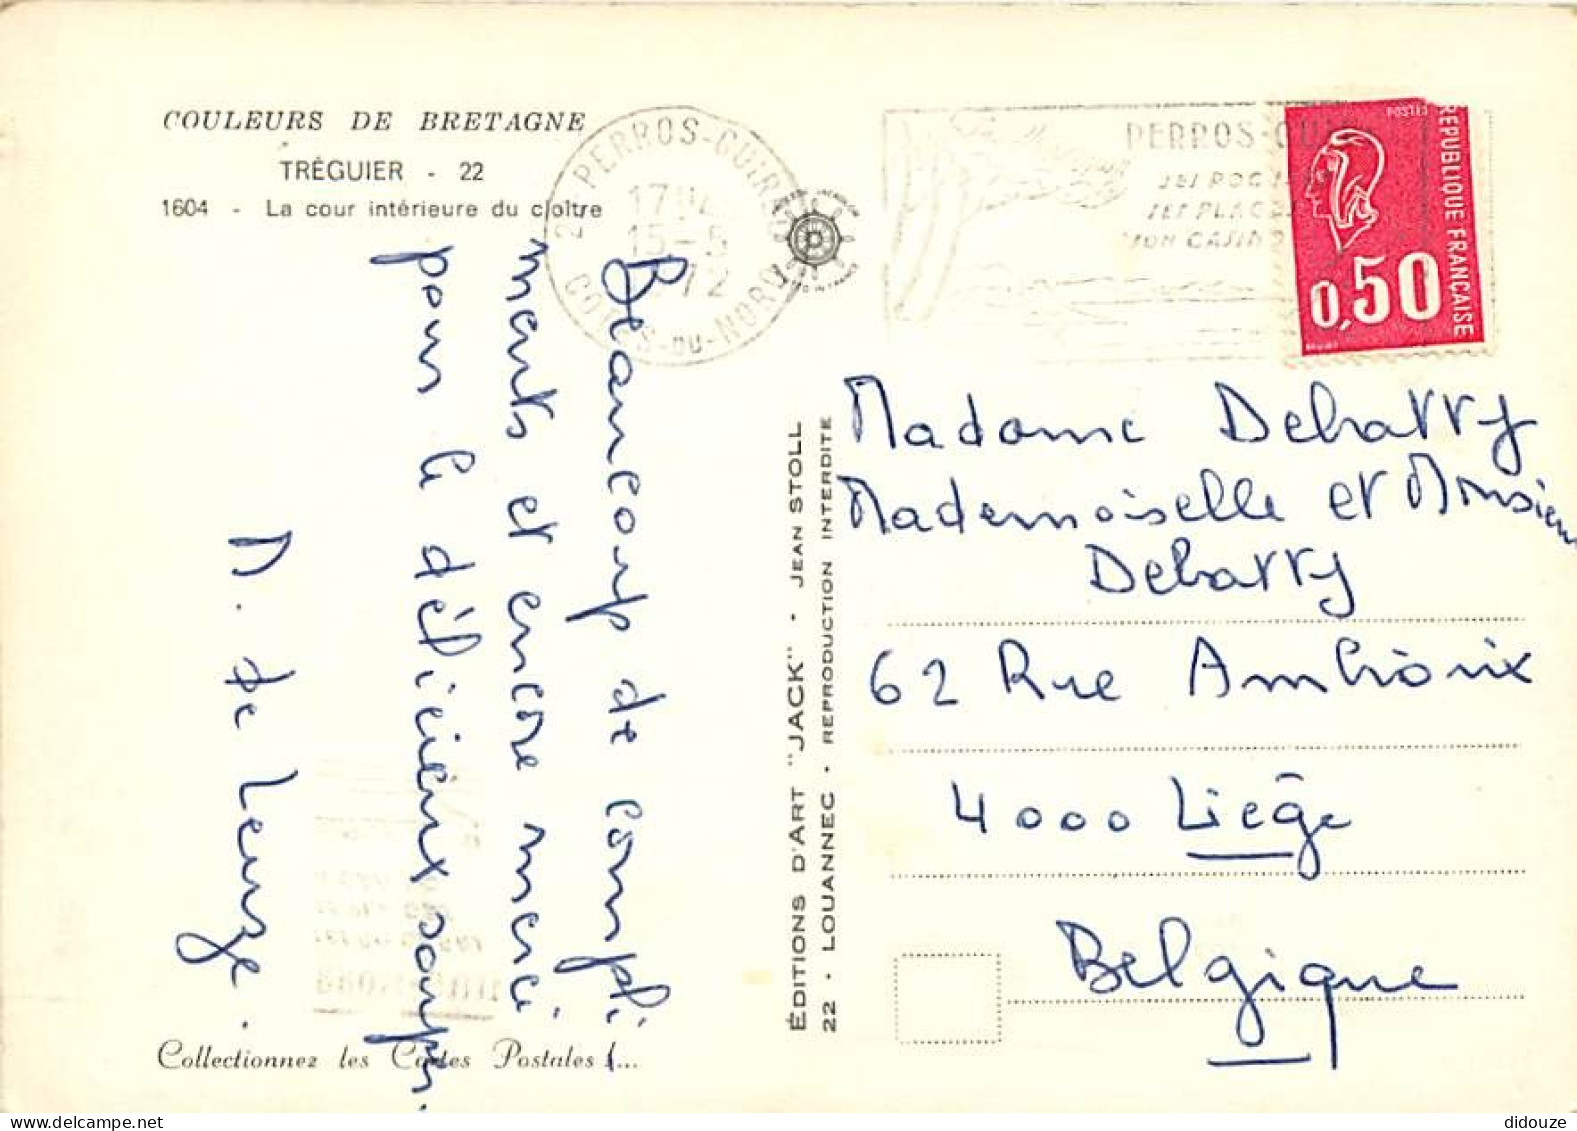 COULEURS DE BRETAGNE
TRÉGUIER - 22
1604 - La cour intérieure du cloître
22 PERROS-GUIREC
17H45
15-5
1972
COTES-DU-NORD
PERROS-GUI
SES ROC
SES PLAGES
SON CASINO
POSTES
REPUBLIQUE FRANÇAISE
0,50
Beaucoup de compli-
ments et encore merci
pour le délicieux souper.
D. de Leuze.
ÉDITIONS D'ART "JACK" • JEAN STOLL
22 • LOUANNEC • REPRODUCTION INTERDITE
Madame Debatty
Mademoiselle et Monsieur
Debatty
62 Rue Ambiorix
4000 Liège
Belgique
Collectionnez les Cartes Postales !...
didouze